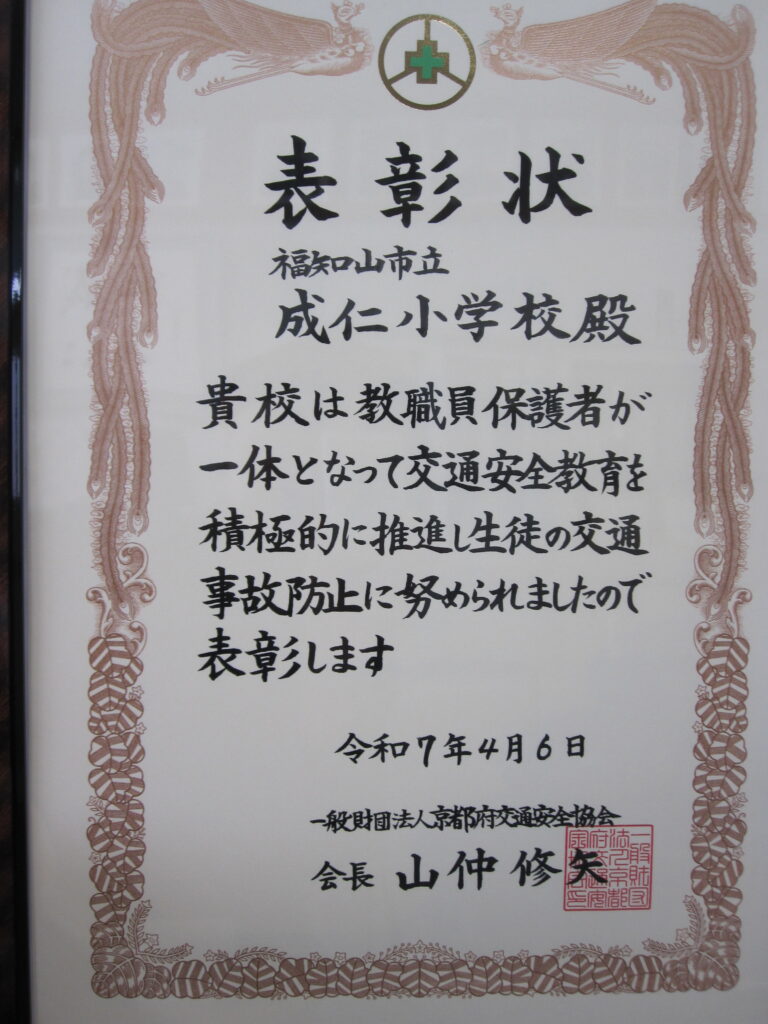 表彰状
福知山市立
成仁小学校殿
貴校は教職員保護者が
一体となって交通安全教育を
積極的に推進し生徒の交通
事故防止に努められましたので
表彰します
令和7年4月6日
一般財団法人京都府交通安全協会
会長 山仲修矢